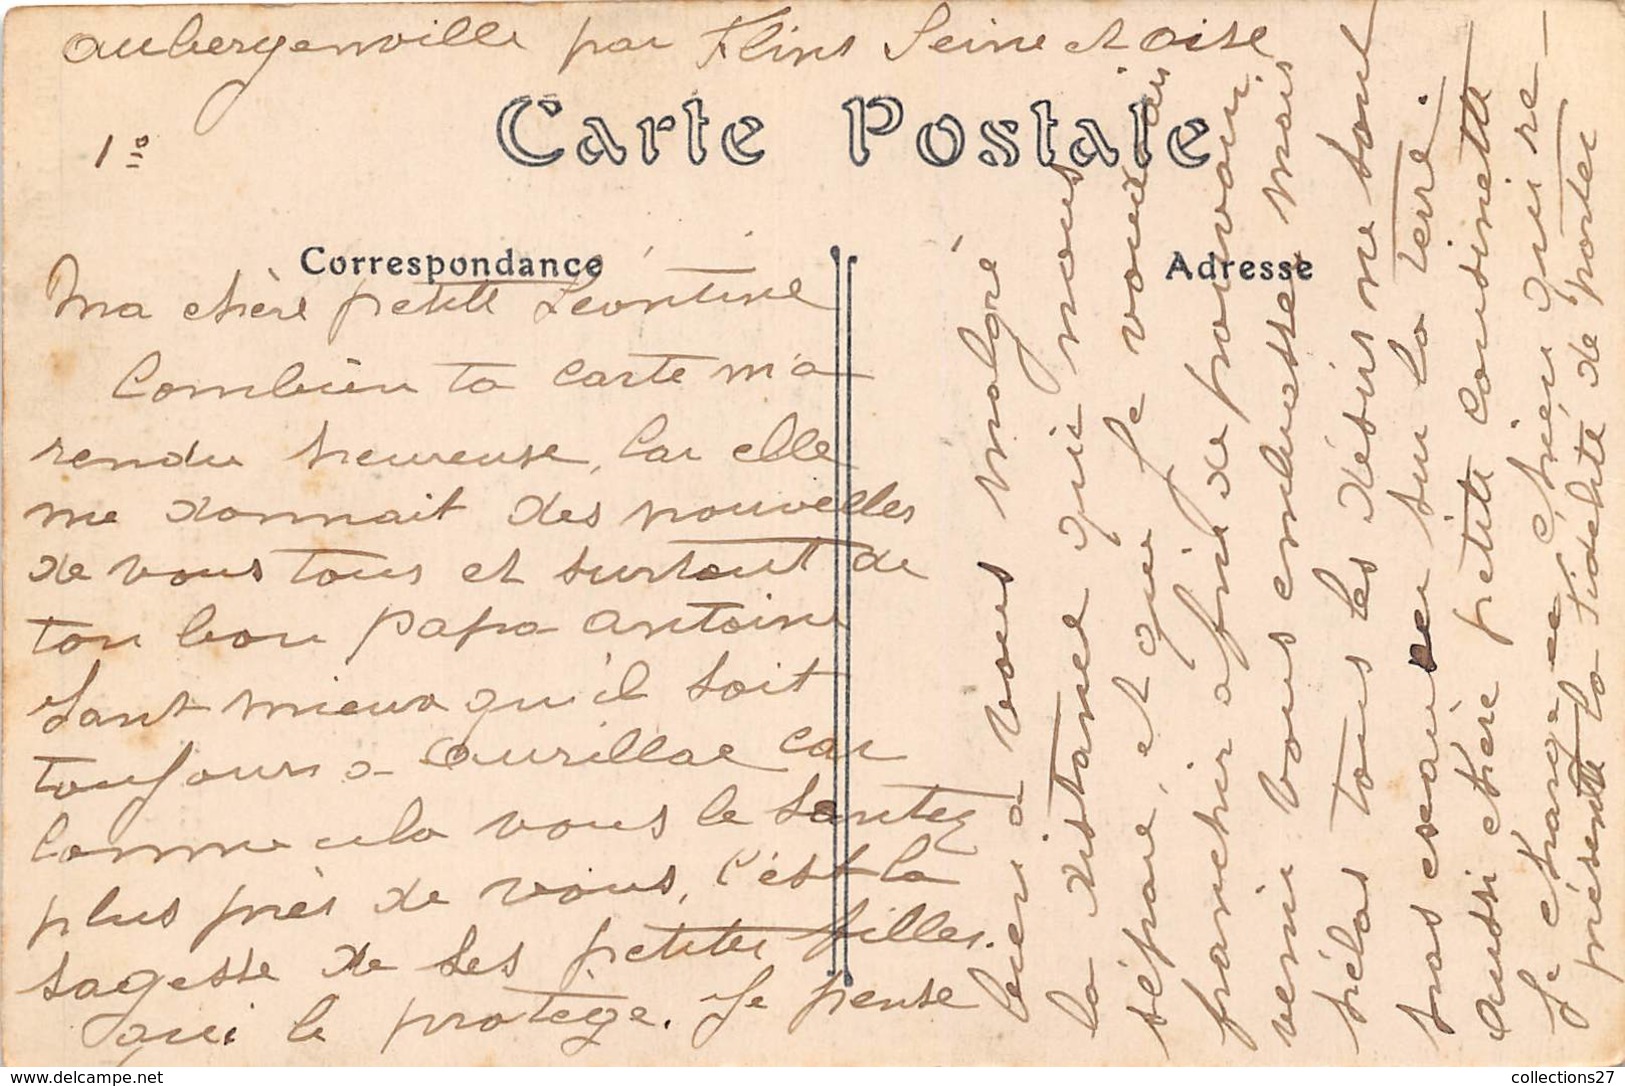 aubergenville par Flins Seine et oise
Carte Postale
1°
Correspondance
Adresse
Ma chère petite Léontine
Combien ta carte m'a
rendu heureuse, Car elle
me donnait des nouvelles
de vous tous et surtout de
ton bon papa antoine
Tant mieux qu'il soit
toujours a aurillac car
comme cela vous le sentez
plus près de vous, c'est la
sagesse de ses petites filles.
qui le protège. Je pense
bien a vous malgré
la distance qui nous
sépare, et que Je voudrais
franchir afin de pouvoir
venir vous embrasser mais
hélas tous les désirs ne sont
pas exaucer sur la terre.
Aussi chère petite cousinette
Je charge ce chien qui re-
présente la fidélité de porter
collections27